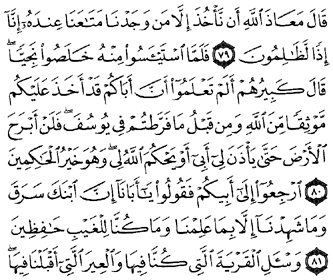 قَالَ مَعَاذَ ٱللَّهِ أَن نَّأْخُذَ إِلَّا مَن وَجَدْنَا مَتَٰعَنَا عِندَهُۥٓ إِنَّآ
إِذًا لَّظَٰلِمُونَ ٧٩ فَلَمَّا ٱسْتَيْـَٔسُوا۟ مِنْهُ خَلَصُوا۟ نَجِيًّا ۖ
قَالَ كَبِيرُهُمْ أَلَمْ تَعْلَمُوٓا۟ أَنَّ أَبَاكُمْ قَدْ أَخَذَ عَلَيْكُم
مَّوْثِقًا مِّنَ ٱللَّهِ وَمِن قَبْلُ مَا فَرَّطتُمْ فِى يُوسُفَ ۖ فَلَنْ أَبْرَحَ
ٱلْأَرْضَ حَتَّىٰ يَأْذَنَ لِىٓ أَبِىٓ أَوْ يَحْكُمَ ٱللَّهُ لِى ۖ وَهُوَ خَيْرُ ٱلْحَٰكِمِينَ
٨٠ ٱرْجِعُوٓا۟ إِلَىٰٓ أَبِيكُمْ فَقُولُوا۟ يَٰٓأَبَانَآ إِنَّ ٱبْنَكَ سَرَقَ
وَمَا شَهِدْنَآ إِلَّا بِمَا عَلِمْنَا وَمَا كُنَّا لِلْغَيْبِ حَٰفِظِينَ
٨١ وَسْـَٔلِ ٱلْقَرْيَةَ ٱلَّتِى كُنَّا فِيهَا وَٱلْعِيرَ ٱلَّتِىٓ أَقْبَلْنَا فِيهَا ۖ